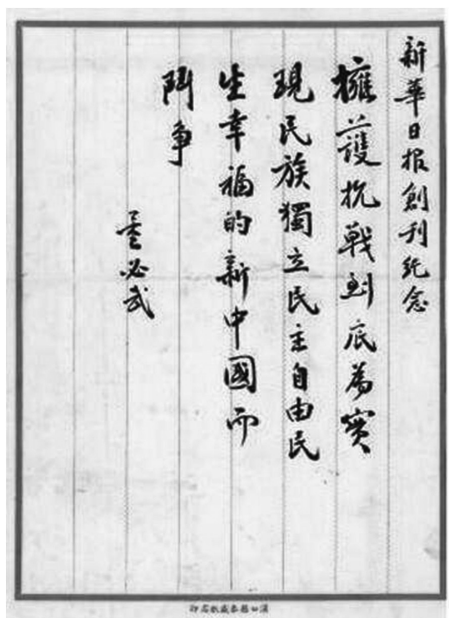 新華日报創刊纪念
擁護抗戰到底為實
現民族獨立民主自由民
生幸福的新中國而
鬥争
董必武